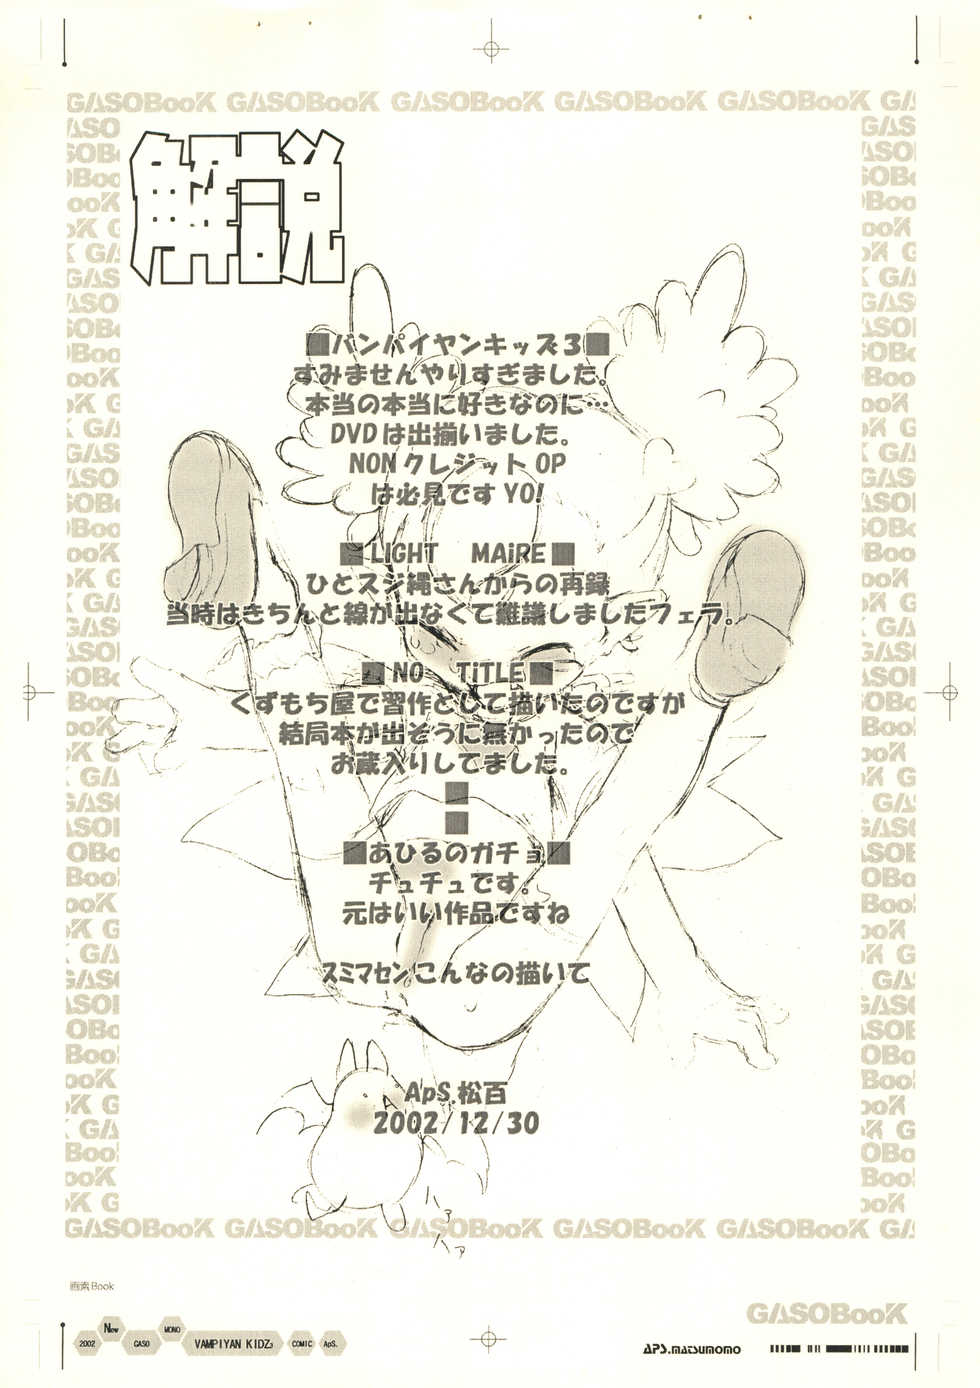 GASOBooK GASOBooK GASOBooK GASOBooK GASOBooK GA
解説
■バンパイヤンキッズ3■
すみませんやりすぎました。
本当の本当に好きなのに…
DVDは出揃いました。
NONクレジットOP
は必見ですYO!
■LIGHT MAiRE■
ひとスジ縄さんからの再録
当時はきちんと線が出なくて難議しましたフェラ。
■NO TiTLE■
くずもち屋で習作として描いたのですが
結局本が出そうに無かったので
お蔵入りしてました。
■
■
■あひるのガチョ■
チュチュです。
元はいい作品ですね
スミマセンこんなの描いて
ApS.松百
2002/12/30
ハァ
ハァ
GASOBooK GASOBooK GASOBooK GASOBooK GASOBooK GA
画素Book
GASOBooK
2002 New GASO MONO VAMPIYAN KIDZ3 COMIC ApS.
APS.MATSUMOMO